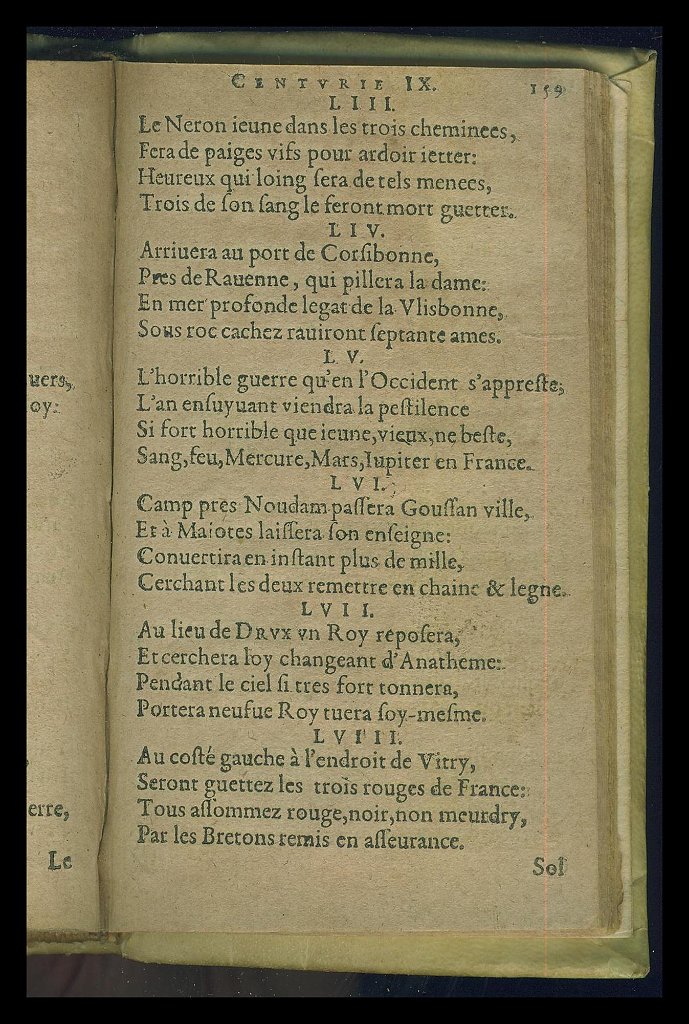 uers,
oy:
erre,
Le
CENTVRIE IX. 159
LIII.
Le Neron ieune dans les trois cheminees,
Fera de paiges vifs pour ardoir ietter:
Heureux qui loing ſera de tels menees,
Trois de ſon ſang le feront mort guetter.
LIV.
Arriuera au port de Corſibonne,
Pres de Rauenne, qui pillera la dame:
En mer profonde legat de la Vlisbonne,
Sous roc cachez rauiront ſeptante ames.
LV.
L'horrible guerre qu'en l'Occident s'appreſte;
L'an enſuyuant viendra la peſtilence
Si fort horrible que ieune, vieux, ne beſte,
Sang, feu, Mercure, Mars, Iupiter en France.
LVI.
Camp pres Noudam paſſera Gouſſan ville,
Et à Maiotes laiſſera ſon enſeigne:
Conuertira en inſtant plus de mille,
Cerchant les deux remettre en chaine & legne.
LVII.
Au lieu de DRVX vn Roy repoſera,
Et cerchera loy changeant d'Anatheme:
Pendant le ciel ſi tres fort tonnera,
Portera neufue Roy tuera ſoy-meſme.
LVIII.
Au coſté gauche à l'endroit de Vitry,
Seront guettez les trois rouges de France:
Tous aſſommez rouge, noir, non meurdry,
Par les Bretons remis en aſſeurance.
Sol